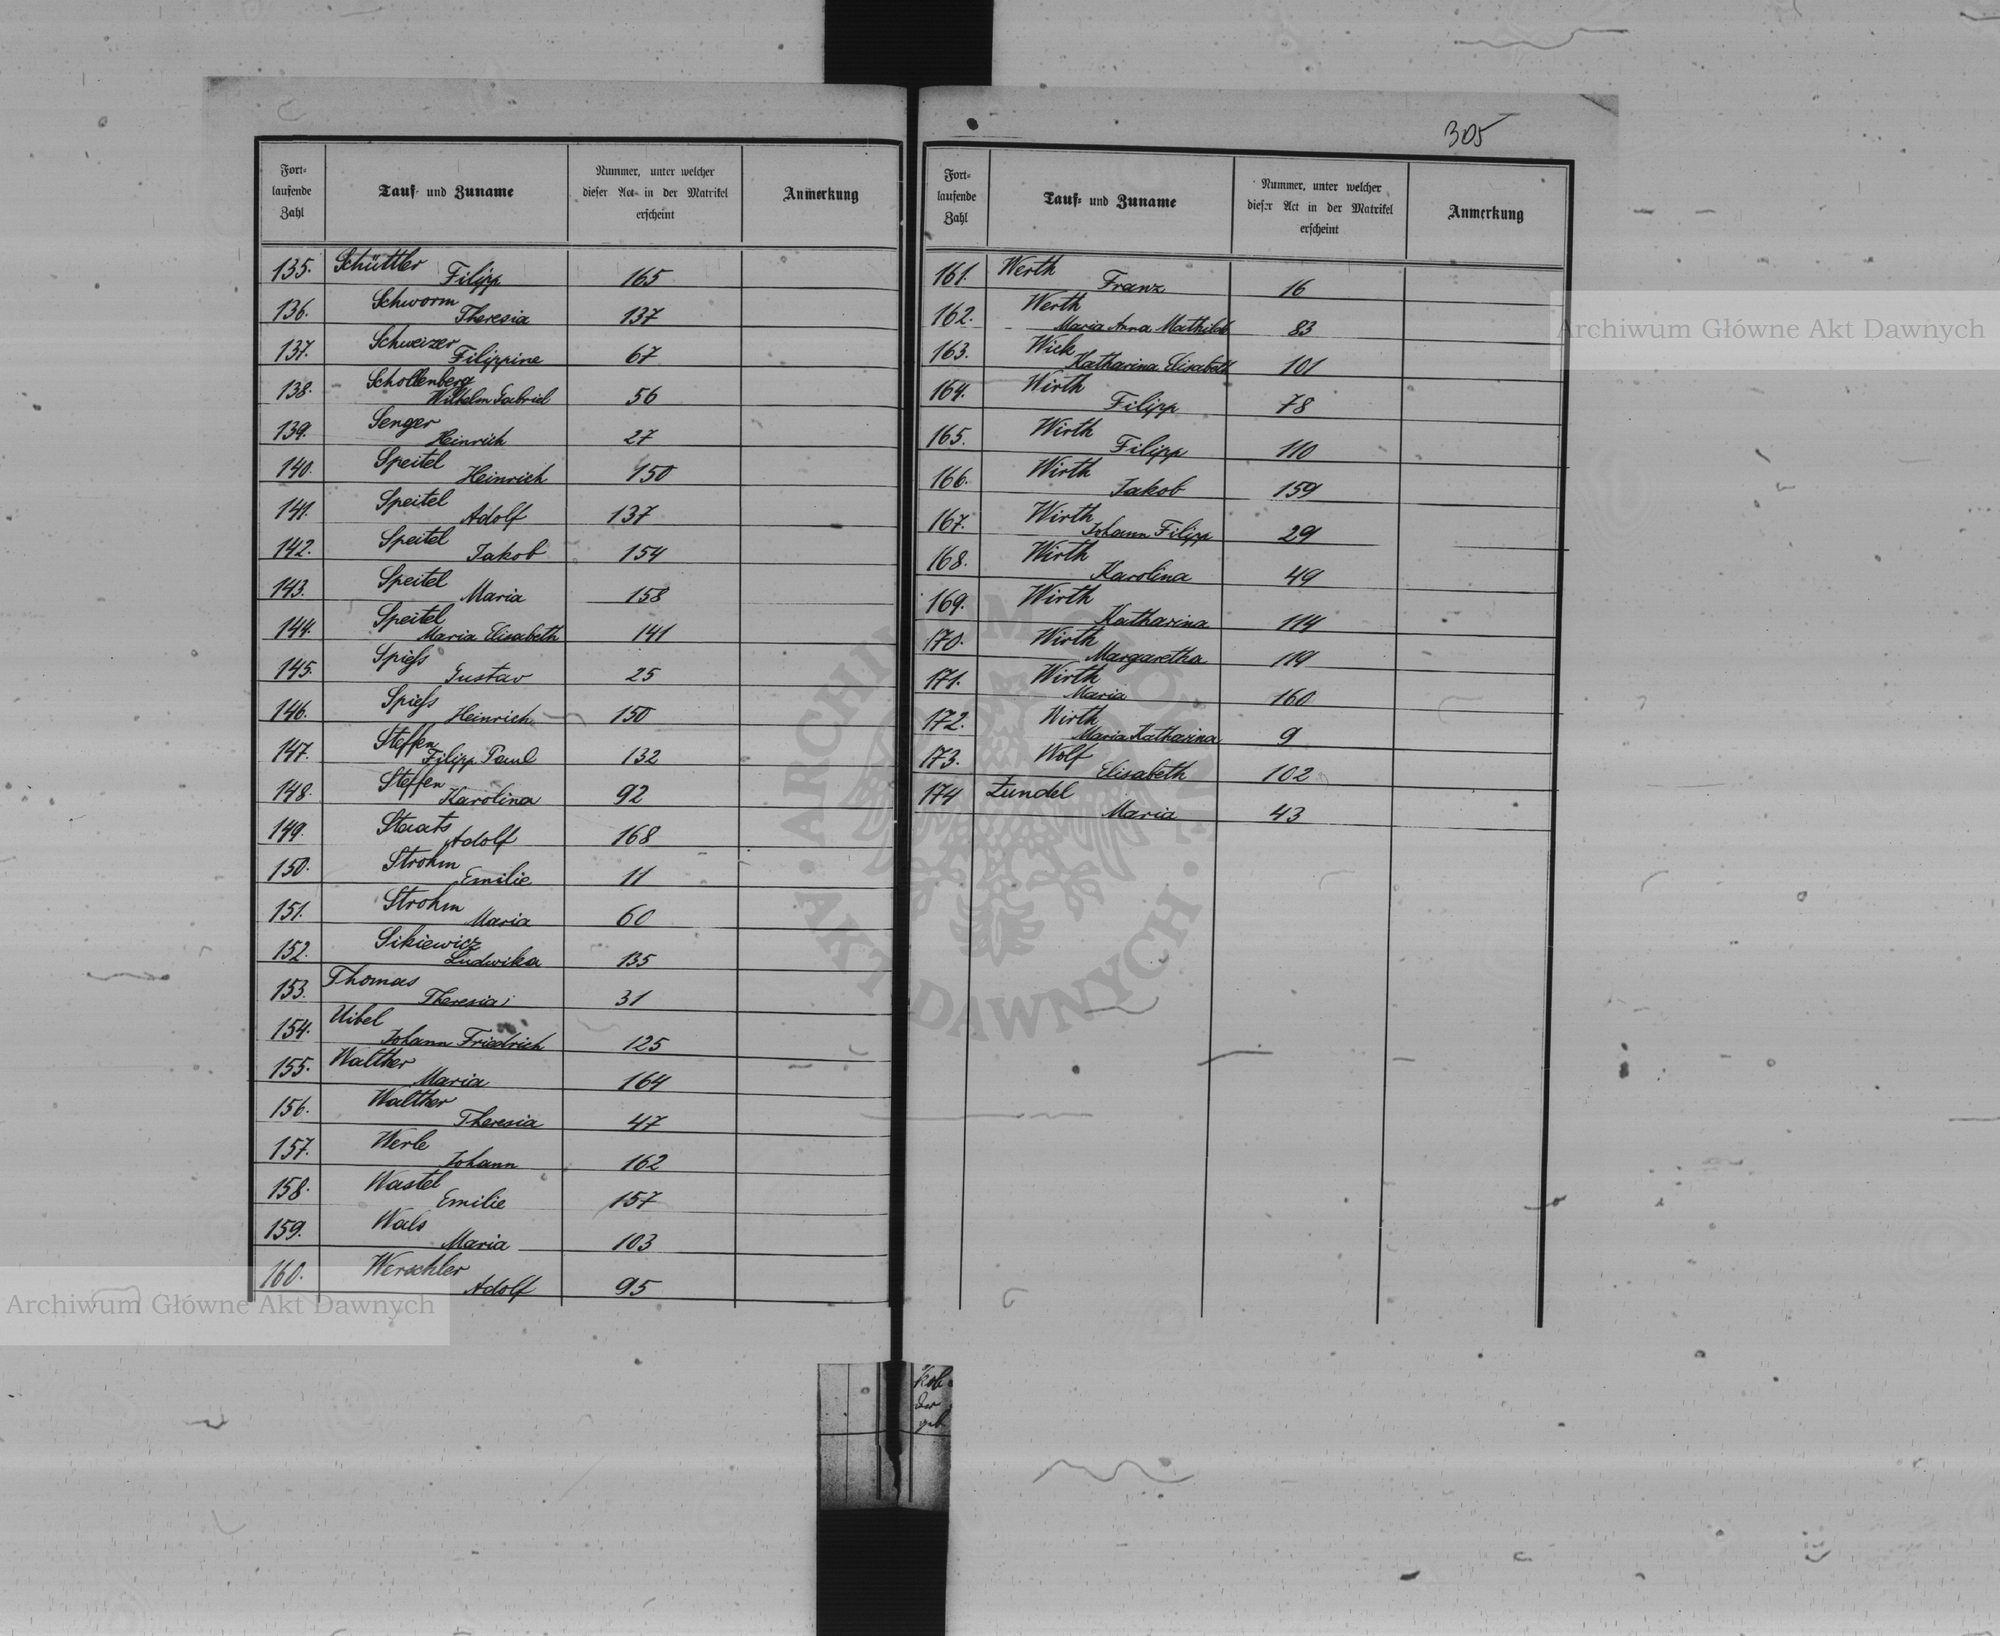 305
Fort-
laufende
Zahl
Tauf- und Zuname
Nummer, unter welcher
dieser Act in der Matrikel
erscheint
Anmerkung
135. Schüttler Filipp 165
136. Schworm Theresia 137
137. Schweizer Filippine 67
138. Schollenberg Wilhelm Gabriel 56
139. Senger Heinrich 27
140. Speitel Heinrich 150
141. Speitel Adolf 137
142. Speitel Jakob 154
143. Speitel Maria 158
144. Speitel Maria Elisabeth 141
145. Spieß Gustav 25
146. Spieß Heinrich 150
147. Steffen Filipp Paul 132
148. Steffen Karolina 92
149. Staats Adolf 168
150. Strohm Emilie 11
151. Strohm Maria 60
152. Sikiewicz Ludwika 135
153. Thomas Theresia 31
154. Uibel Johann Friedrich 125
155. Walther Maria 164
156. Walther Theresia 47
157. Werle Johann 162
158. Wastel Emilie 157
159. Wals Maria 103
160. Werschler Adolf 95
Fort-
laufende
Zahl
Tauf- und Zuname
Nummer, unter welcher
dieser Act in der Matrikel
erscheint
Anmerkung
161. Werth Franz 16
162. Werth Maria Anna Mathilde 83
163. Wick Katharina Elisabeth 101
164. Wirth Filipp 78
165. Wirth Filipp 110
166. Wirth Jakob 159
167. Wirth Johann Filipp 29
168. Wirth Karolina 49
169. Wirth Katharina 114
170. Wirth Margaretha 119
171. Wirth Maria 160
172. Wirth Maria Katharina 9
173. Wolf Elisabeth 102
174 Zundel Maria 43
Archiwum Główne Akt Dawnych
Archiwum Główne Akt Dawnych
ARCHIWUM GŁÓWNE · AKT DAWNYCH ·